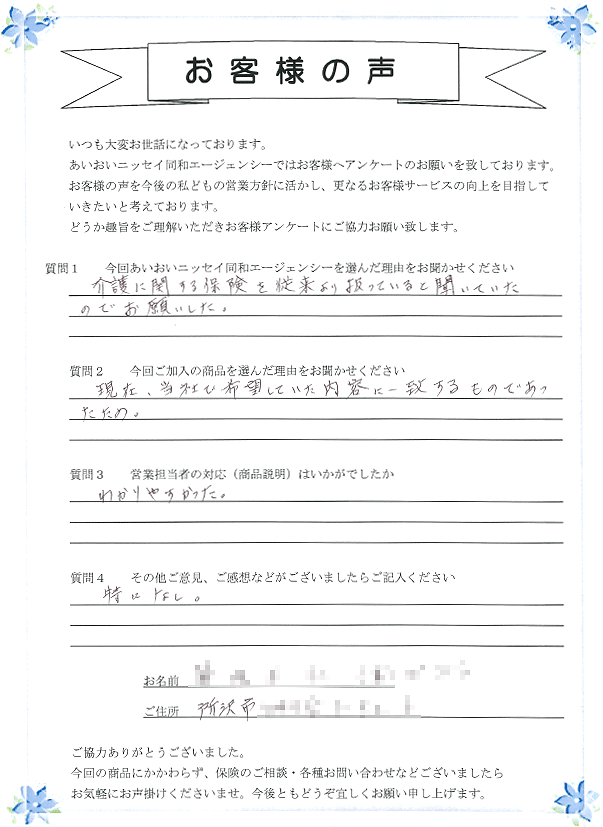 お客様の声
いつも大変お世話になっております。
あいおいニッセイ同和エージェンシーではお客様へアンケートのお願いを致しております。
お客様の声を今後の私どもの営業方針に活かし、更なるお客様サービスの向上を目指して
いきたいと考えております。
どうか趣旨をご理解いただきお客様アンケートにご協力お願い致します。
質問1 今回あいおいニッセイ同和エージェンシーを選んだ理由をお聞かせください
介護に関する保険を従来より扱っていると聞いていた
のでお願いした。
質問2 今回ご加入の商品を選んだ理由をお聞かせください
現在、当社で希望していた内容に一致するものであっ
たため。
質問3 営業担当者の対応（商品説明）はいかがでしたか
わかりやすかった。
質問4 その他ご意見、ご感想などがございましたらご記入ください
特になし。
お名前
ご住所 所沢市
ご協力ありがとうございました。
今回の商品にかかわらず、保険のご相談・各種お問い合わせなどございましたら
お気軽にお声掛けくださいませ。今後ともどうぞ宜しくお願い申し上げます。